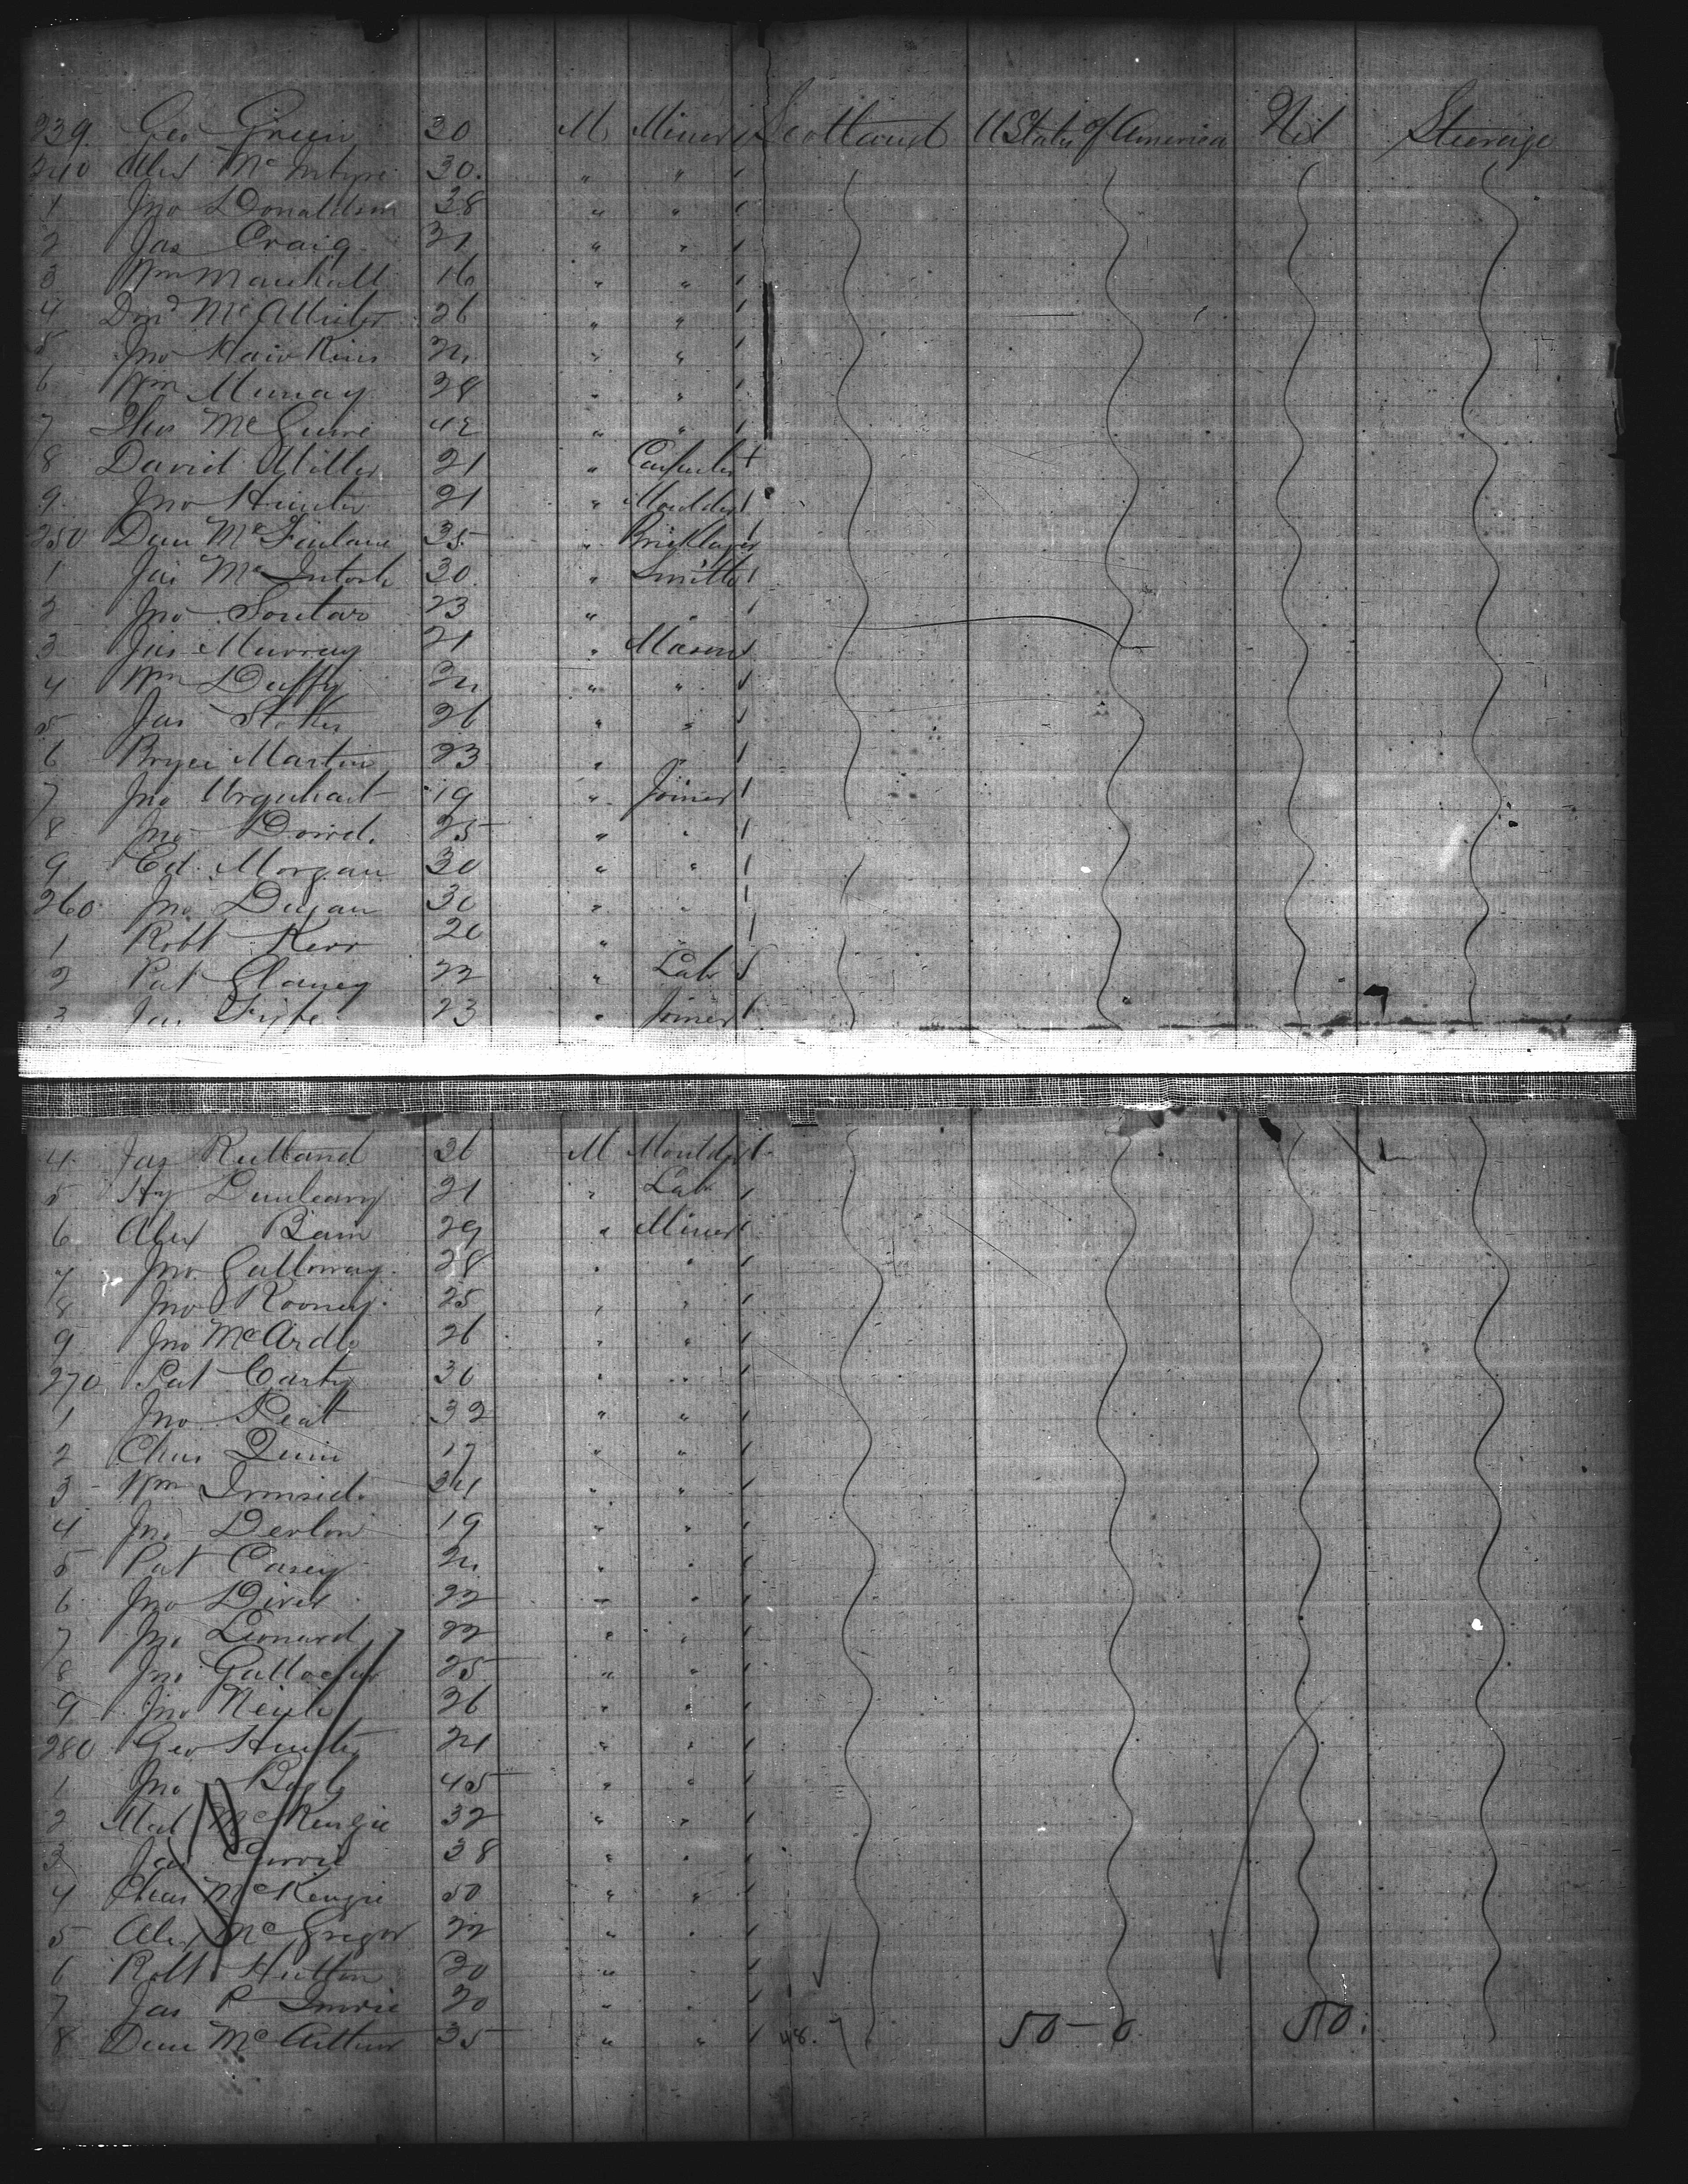 239. Geo Green 30 M Miner 1 Scotland U States of America Nil Steerage
240 Alex McIntyre 30. " " 1
1 Jno Donaldson 38 " " 1
2 Jas Craig 31 " " 1
3 Wm Marshall 16 " " 1
4 Dnd McAllister 26 " " 1
5 Jno " " 1
6 Wm Murray 28 " " 1
7 Thos McGuire 42 " " 1
8 David Miller 21 " Carpenter 1
9. Jno Hunter 21 " Moulder 1
250 Dun McFarlane 35 " Bricklayer 1
1 Jas McIntosh 30. " Smith 1
2 Jno Soutar 23 " " 1
3 Jas Murray 21 " Mason 1
4 Wm Duffy " " 1
5 Jas Stokes 26 " " 1
6 Bryce Martin 23 " " 1
7 Jno Urquhart 19 " Joiner 1
8 Jno Dowd. 25 " " 1
9 Ed. Morgan 30 " " 1
260 Jno Dugan 30 " " 1
1 Robt Kerr 20 " " 1
2 Pat Clancy 22 " Lab 1
3 Jas 23 " Joiner 1
4 Jas Rutland 26 M Moulder 1
5 Hy Dunleavy 21 " Lab 1
6 Alex Bain 29 " Miner 1
7 Jno. Galloway. 28 " " 1
8 Jno Rooney. 25 " " 1
9 Jno McArdle 26 " " 1
270 Pat Carty 30 " " 1
1 Jno Peat 32 " " 1
2 Chas Quin 17 " " 1
3 Wm Ironside 24 " " 1
4 Jno Devlon 19 " " 1
5 Pat Casey " " 1
6 Jno Diver 22 " " 1
7 Jno Leonard 22 " " 1
8 Jno Gallocher 25 " " 1
9 Jno 26 " " 1
280 Geo Hunter 24 " " 1
1 Jno 45 " " 1
2 McKenzie 32 " " 1
3 Jas Currie 38 " " 1
4 Chas McKenzie 50 " " 1
5 Alex McGregor 22 " " 1
6 Robt Hutton 30 " " 1
7 Jas P Imrie 20 " " 1
8 Dun McArthur 35 " " 1 48. 50 — 0. 50.